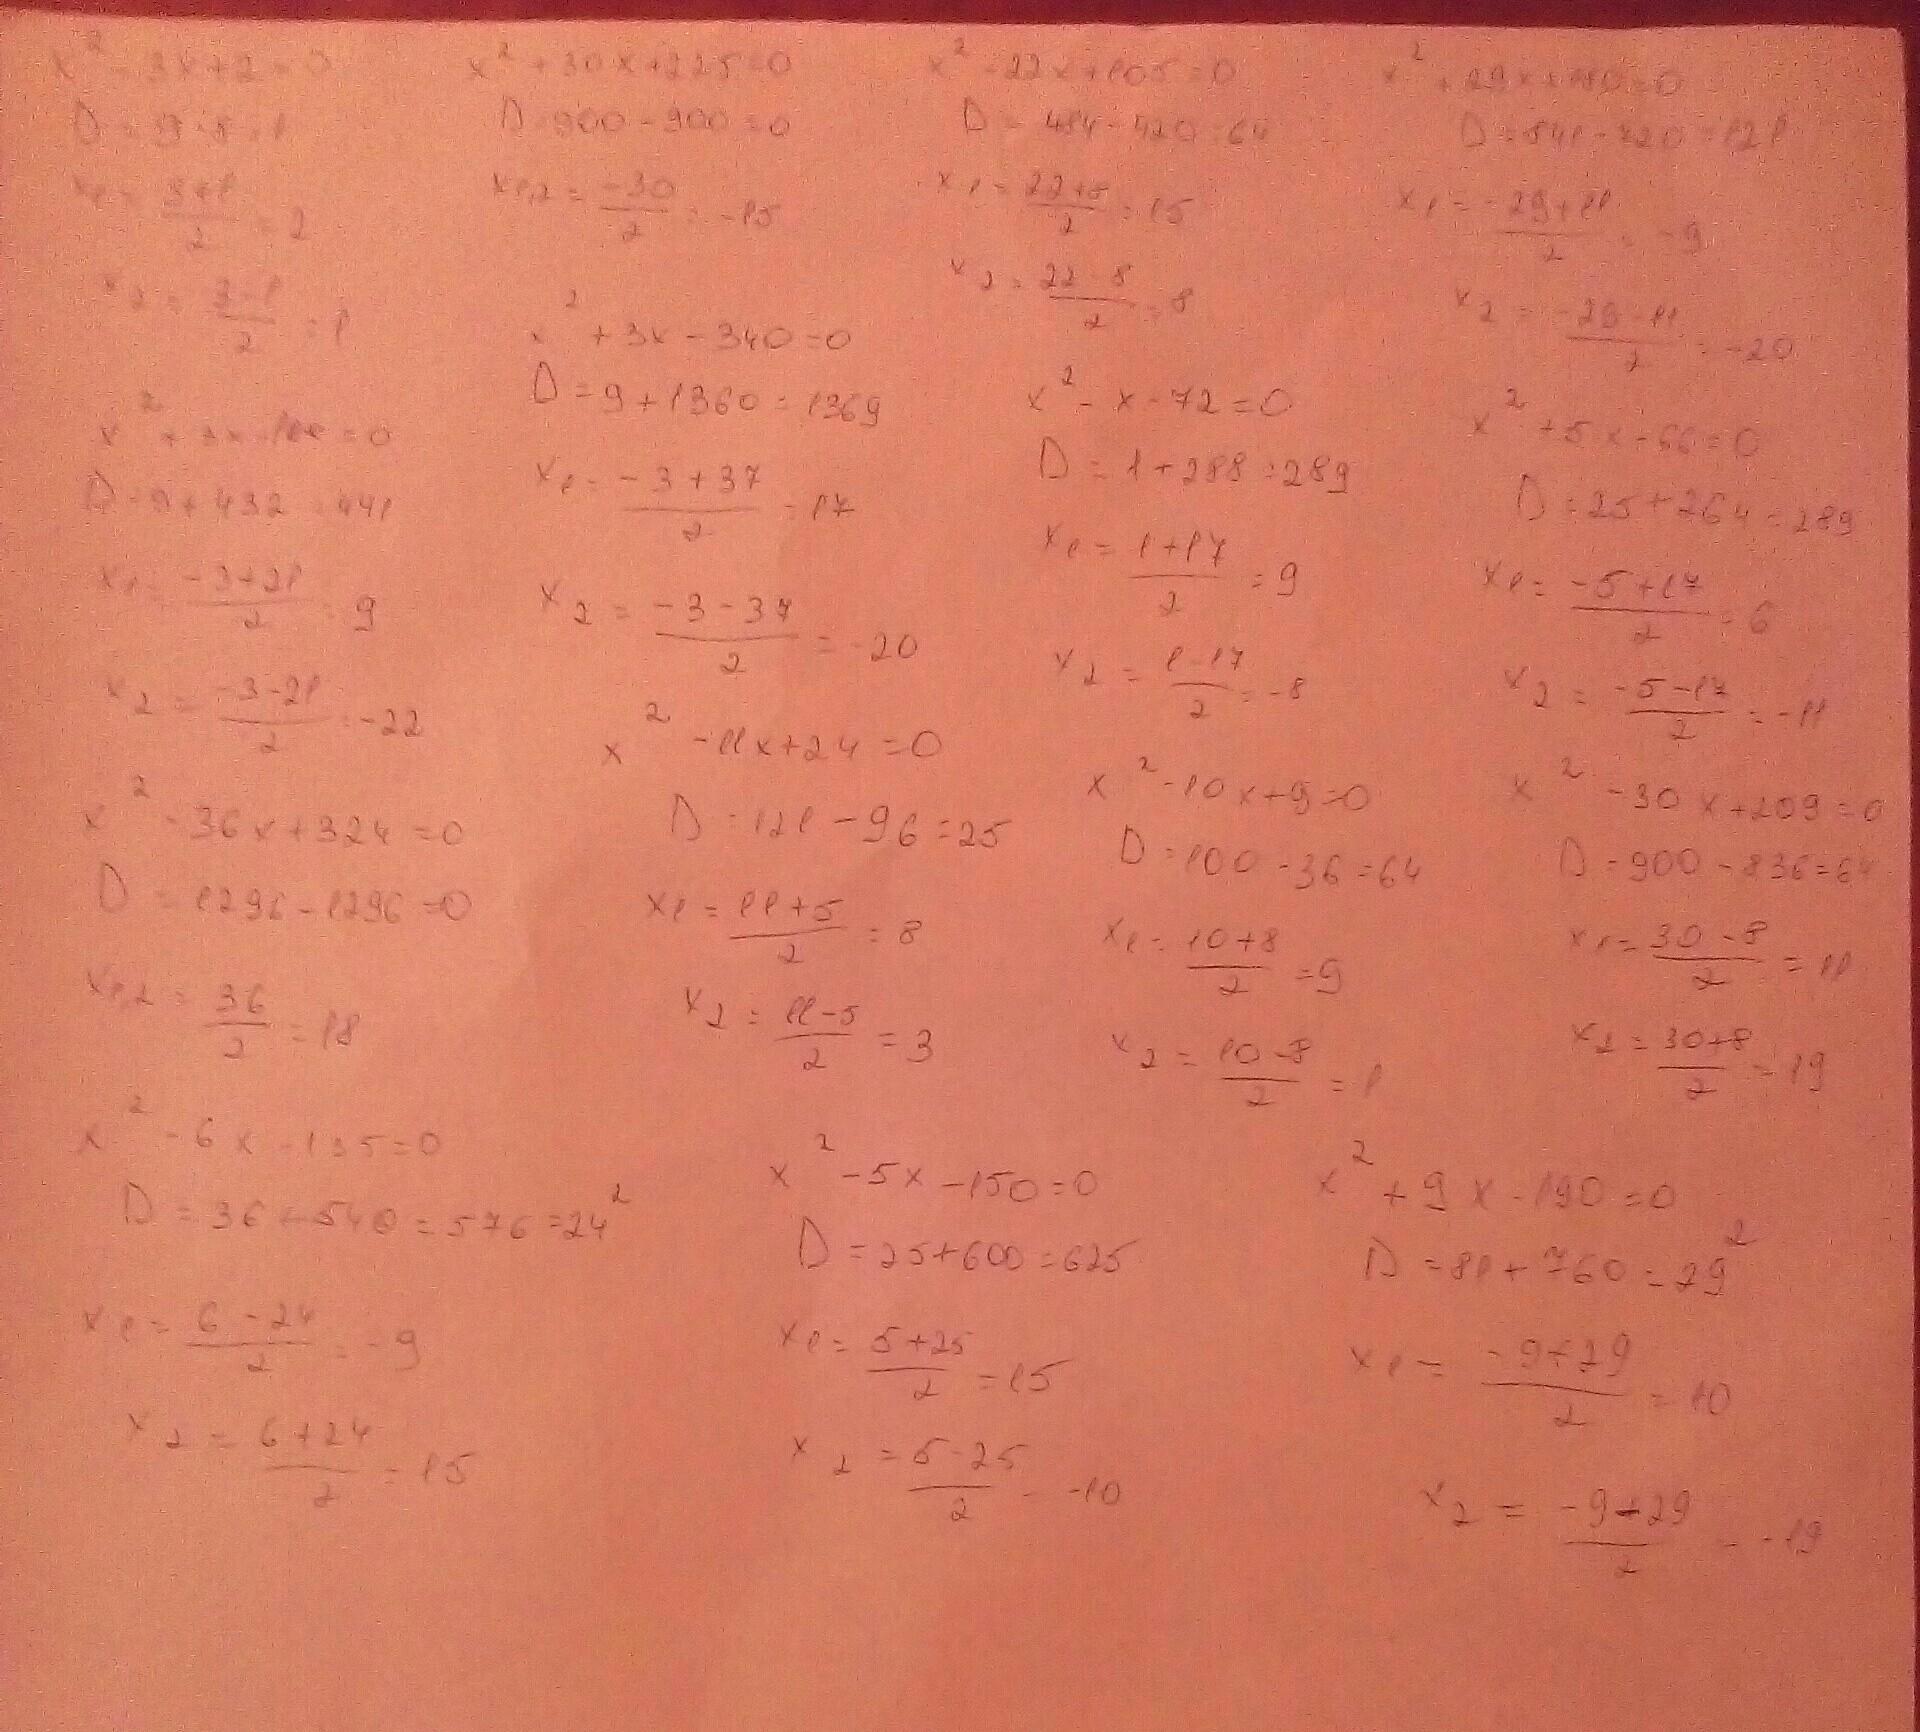 x² - 3x + 2 = 0
D = 9 - 8 = 1
x₁ = (3+1)/2 = 2
x₂ = (3-1)/2 = 1
x² + 3x = 0
D = 9 + 432 = 441
x₁ = (-3+21)/2 = 9
x₂ = (-3-21)/2 = -22
x² - 36x + 324 = 0
D = 1296 - 1296 = 0
x₁,₂ = 36/2 = 18
x² - 6x - 135 = 0
D = 36 + 540 = 576 = 24²
x₁ = (6-24)/2 = -9
x₂ = (6+24)/2 = 15
x² + 30x + 225 = 0
D = 900 - 900 = 0
x₁,₂ = -30/2 = -15
x² + 3x - 340 = 0
D = 9 + 1360 = 1369
x₁ = (-3+37)/2 = 17
x₂ = (-3-37)/2 = -20
x² - 11x + 24 = 0
D = 121 - 96 = 25
x₁ = (11+5)/2 = 8
x₂ = (11-5)/2 = 3
x² - 5x - 150 = 0
D = 25 + 600 = 625
x₁ = (5+25)/2 = 15
x₂ = (5-25)/2 = -10
x² - 22x + 105 = 0
D = 484 - 420 = 64
x₁ = 22+ /2 = 15
x₂ = (22-8)/2 = 8
x² - x - 72 = 0
D = 1 + 288 = 289
x₁ = (1+17)/2 = 9
x₂ = (1-17)/2 = -8
x² - 10x + 9 = 0
D = 100 - 36 = 64
x₁ = (10+8)/2 = 9
x₂ = (10-8)/2 = 1
x² + 9x - 190 = 0
D = 81 + 760 = 29²
x₁ = (-9+29)/2 = 10
x₂ = (-9-29)/2 = -19
x² + 29x + 180 = 0
D = 841 - 720 = 121
x₁ = (-29+11)/2 = -9
x₂ = (-29-11)/2 = -20
x² + 5x - 66 = 0
D = 25 + 264 = 289
x₁ = (-5+17)/2 = 6
x₂ = (-5-17)/2 = -11
x² - 30x + 209 = 0
D = 900 - 836 = 64
x₁ = (30-8)/2 = 11
x₂ = (30+8)/2 = 19